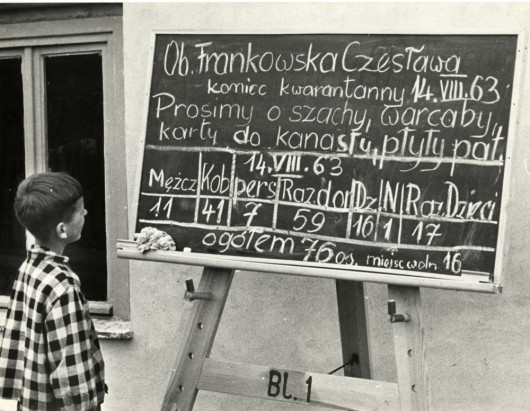 Ob. Frankowska Czesława
koniec kwarantanny 14.VIII.63
Prosimy o szachy, warcaby,
karty do kanasty, płyty pat.
14.VIII.63
Mężcz Kob pers Raz.dor Dz N Raz.Dzieci
11 41 7 59 16 1 17
ogółem 76 os. miejsc woln. 16
BL.1